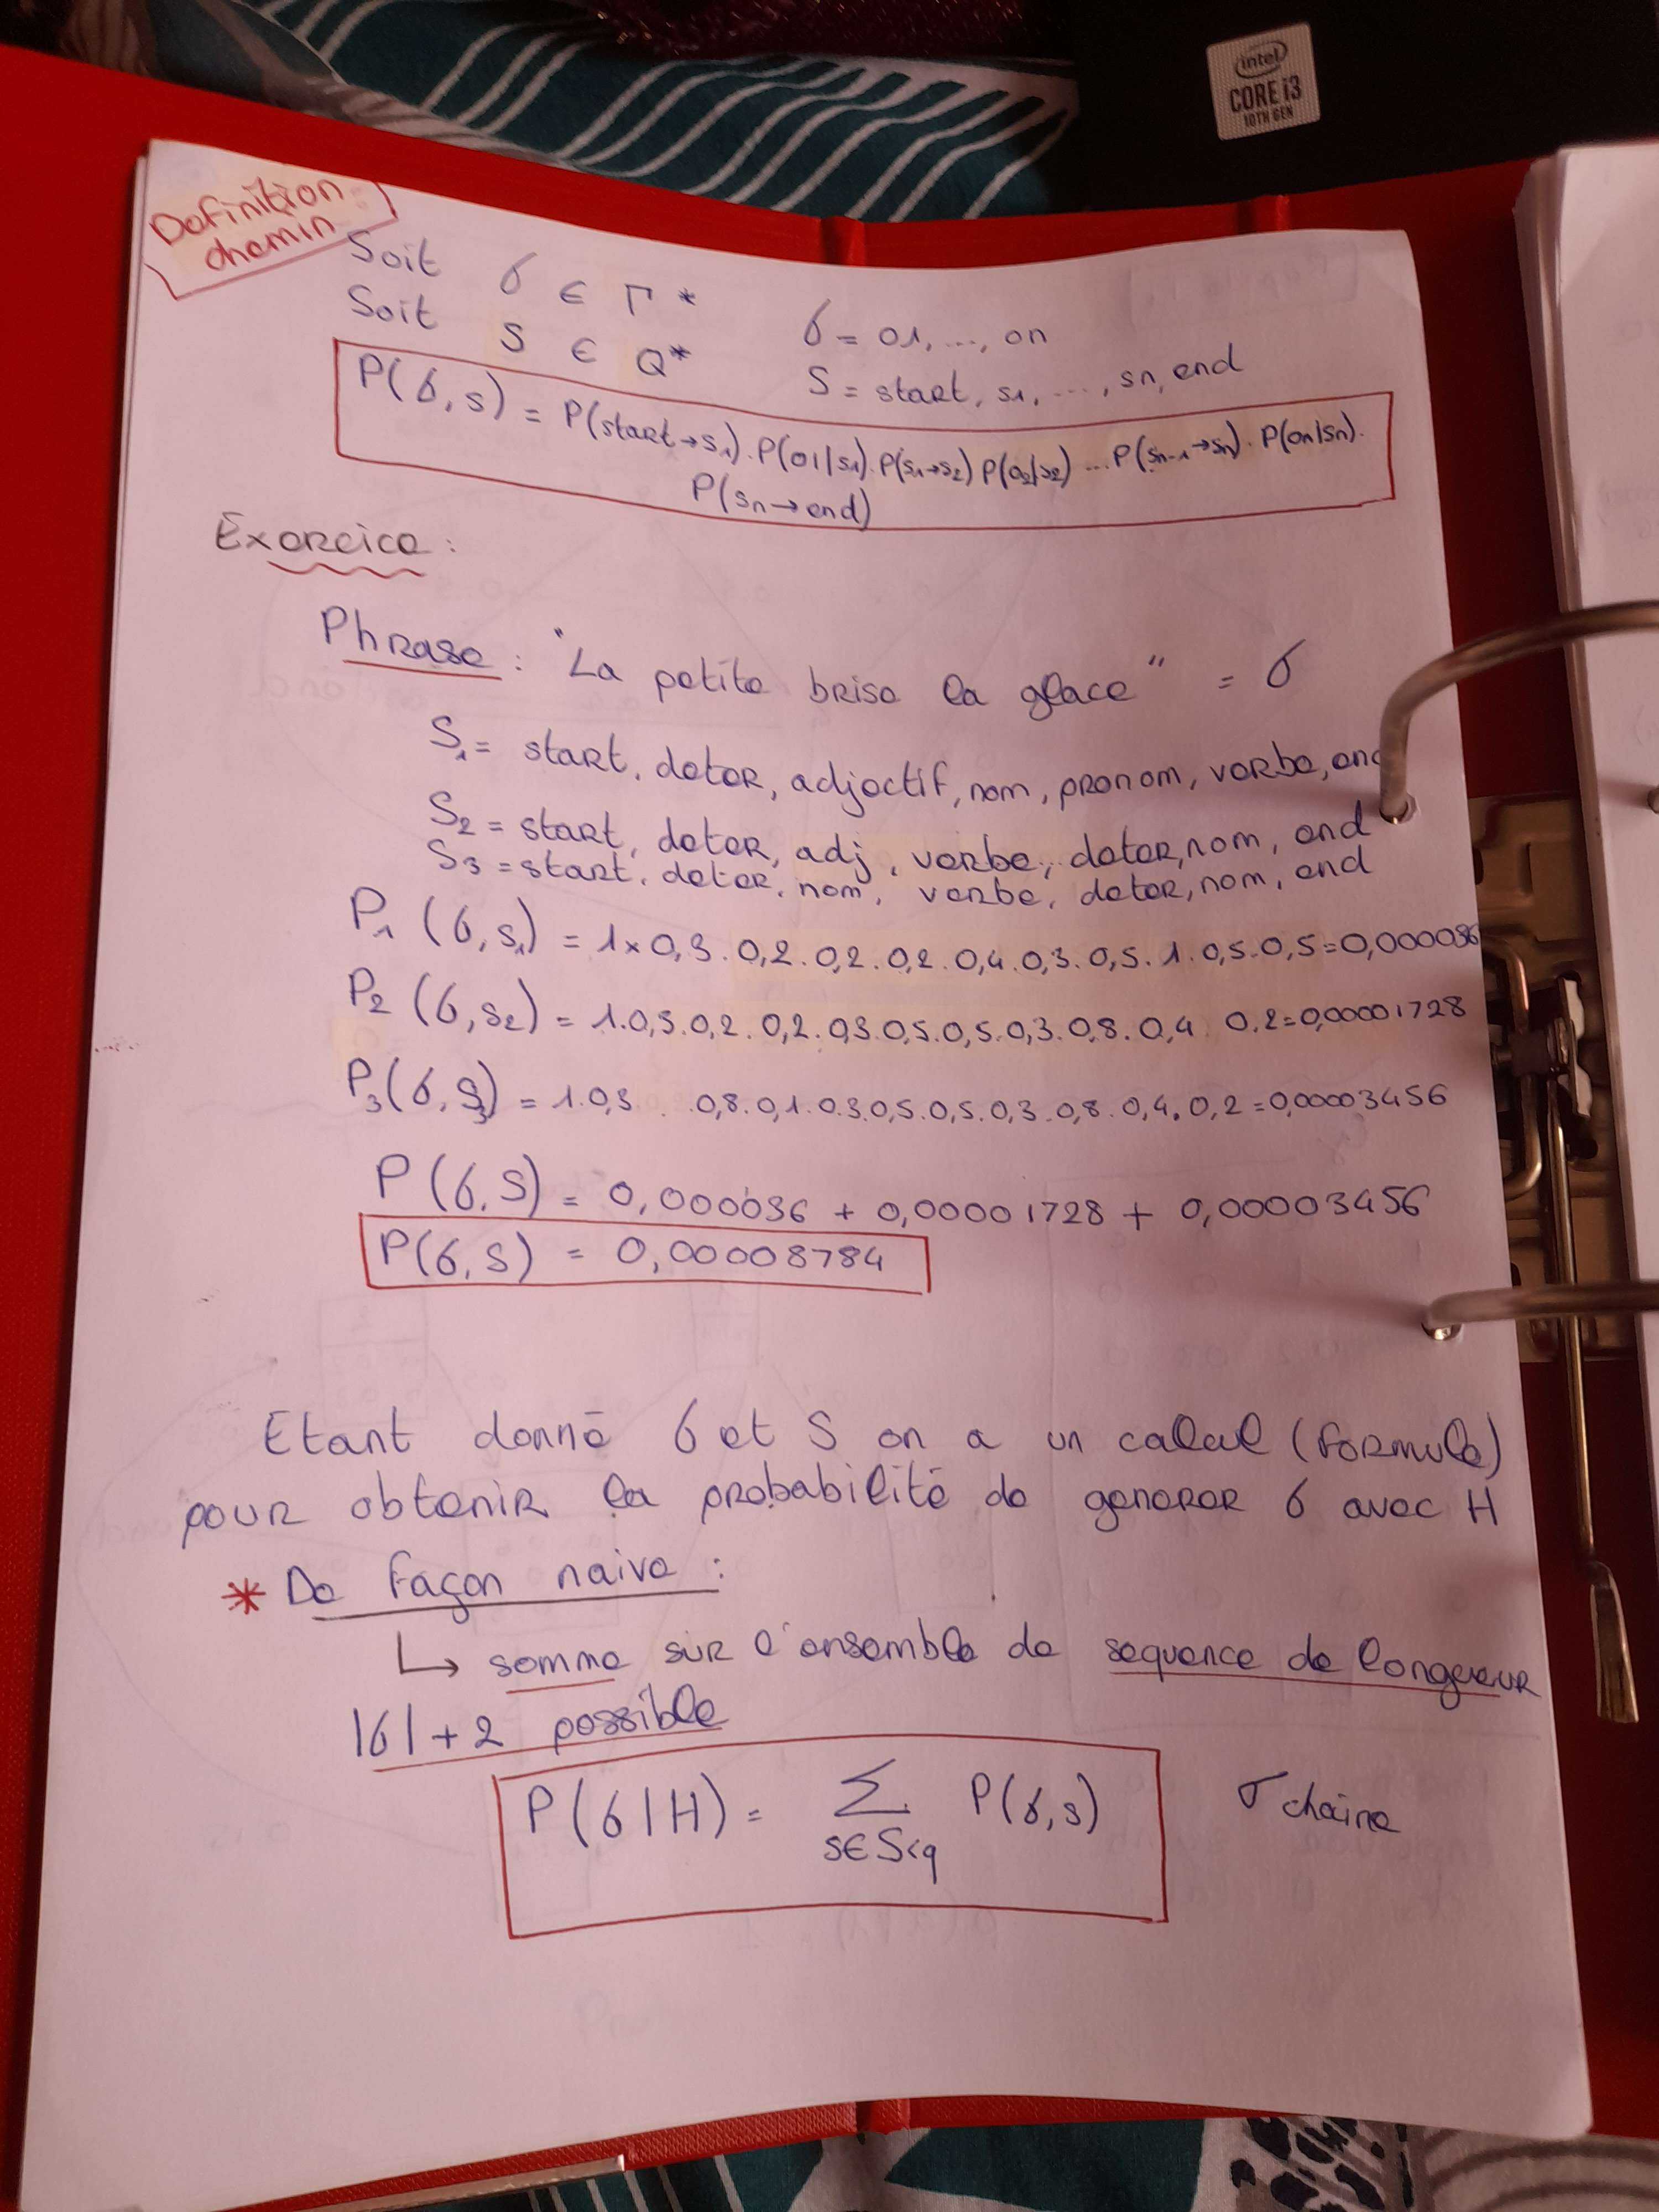 intel
CORE i3
10TH GEN
Definition :
chemin
Soit σ ∈ Γ*
Soit S ∈ Q*
σ = o1, ..., on
S = start, s1, ..., sn, end
P(σ, s) = P(start→s1). P(o1/s1). P(s1→s2) P(o2/s2) ... P(sn-1→sn). P(on/sn).
P(sn→end)
Exercice :
Phrase : "La petite brise la glace" = σ
S1 = start, deter, adjectif, nom, pronom, verbe, end
S2 = start, deter, adj, verbe, deter, nom, end
S3 = start, deter, nom, verbe, deter, nom, end
P1 (σ, s1) = 1 × 0,3 . 0,2 . 0,2 . 0,2 . 0,4 . 0,3 . 0,5 . 1 . 0,5 . 0,5 = 0,000036
P2 (σ, s2) = 1 . 0,3 . 0,2 . 0,2 . 0,3 . 0,5 . 0,5 . 0,3 . 0,8 . 0,4 0,2 = 0,00001728
P3 (σ, S3) = 1 . 0,3 . 0,8 . 0,1 . 0,3 . 0,5 . 0,5 . 0,3 . 0,8 . 0,4 . 0,2 = 0,00003456
P (σ, S) = 0,000036 + 0,00001728 + 0,00003456
P(σ, S) = 0,00008784
Etant donné σ et S on a un calcul (formule)
pour obtenir la probabilité de generer σ avec H
* De façon naive :
↳ somme sur l'ensemble de sequence de longueur
|σ| + 2 possible
P(σ | H) = Σ P(σ, s)
s∈S<q
σ chaine